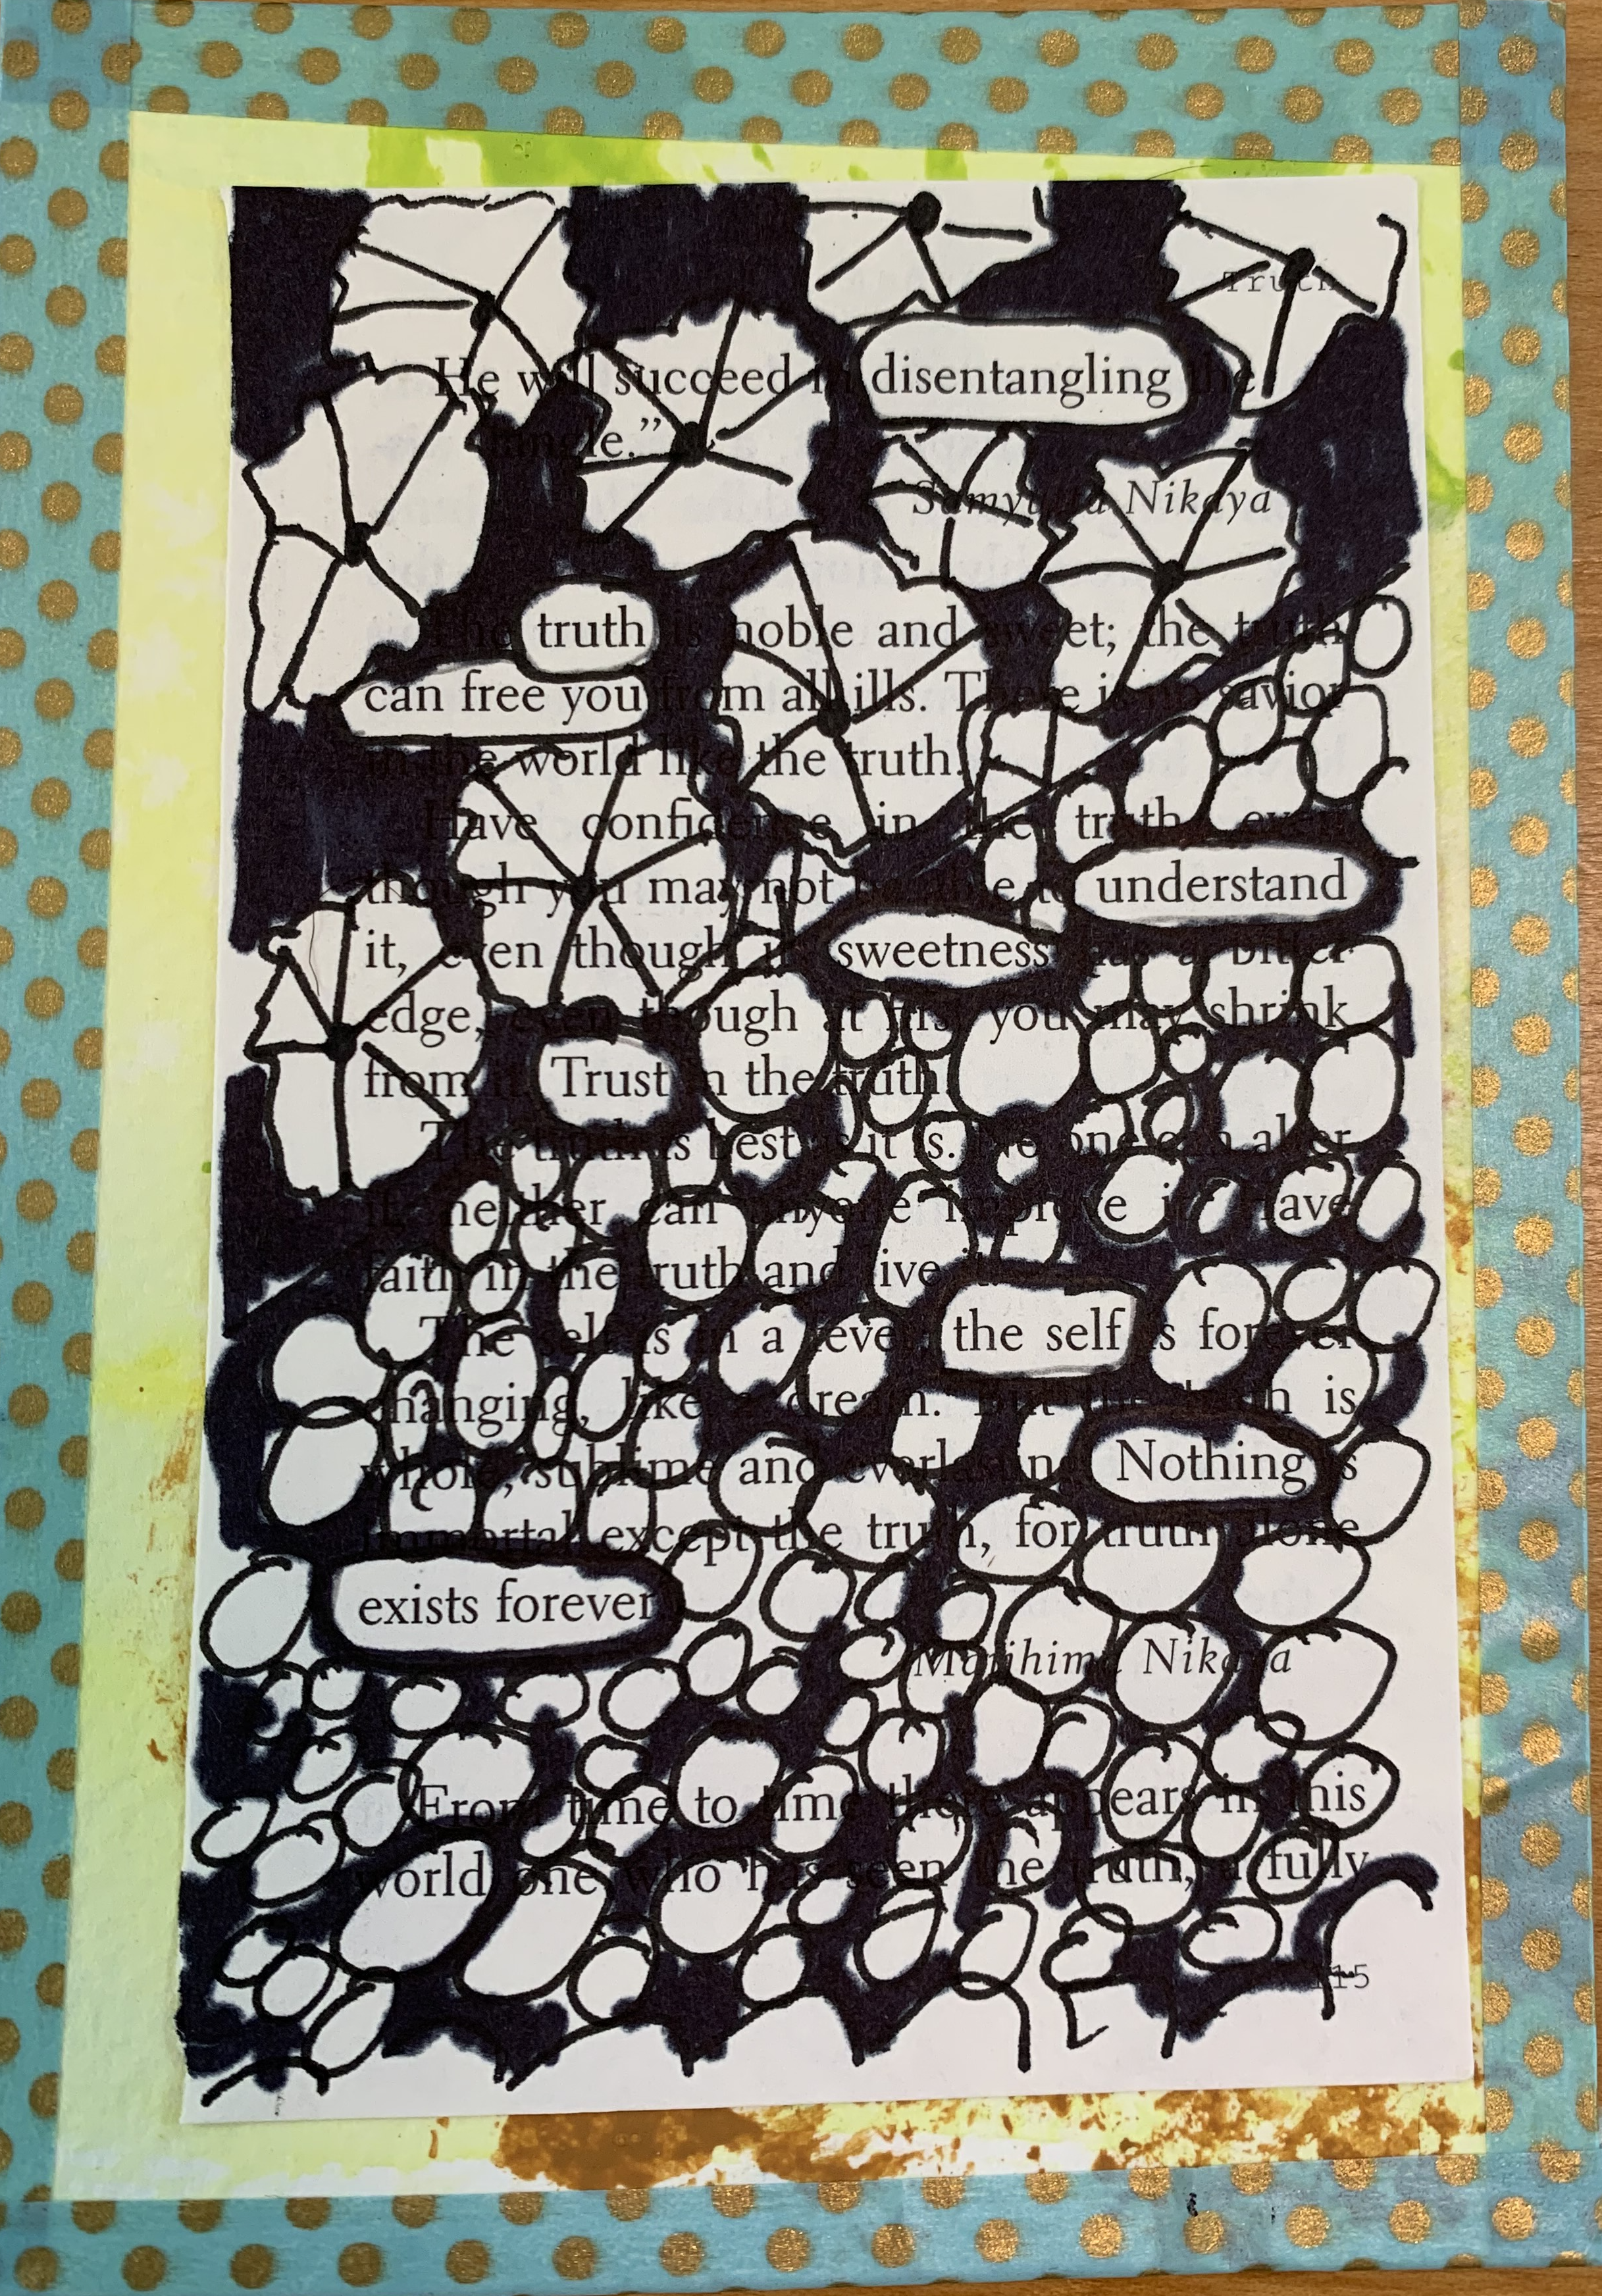 Truth
He will succeed in disentangling the
tangle.”
Samyutta Nikaya
The truth is noble and sweet; the truth
can free you from all ills. There is no savior
in the world like the truth.
Have confidence in the truth, even
though you may not be able to understand
it, even though its sweetness has a bitter
edge, even though at first you may shrink
from it. Trust in the truth.
The truth is best as it is. No one can alter
it, neither can anyone improve it. Have
faith in the truth and live it.
The self is in a fever; the self is forever
changing, like a dream. But the truth is
whole, sublime and everlasting. Nothing is
immortal except the truth, for truth alone
exists forever
Majjhima Nikaya
From time to time there appears in this
world one who has seen the truth, a fully
115